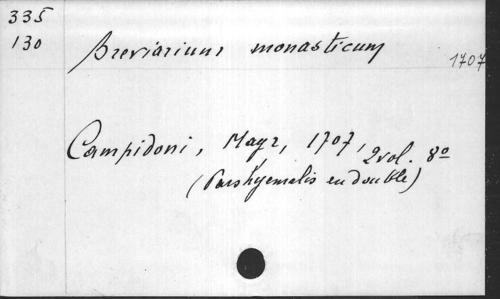 335
130
Breviarium monasticum
1707
Campidoni, Mayr, 1707, 2 vol. 8º
(Pars hyemalis en double)